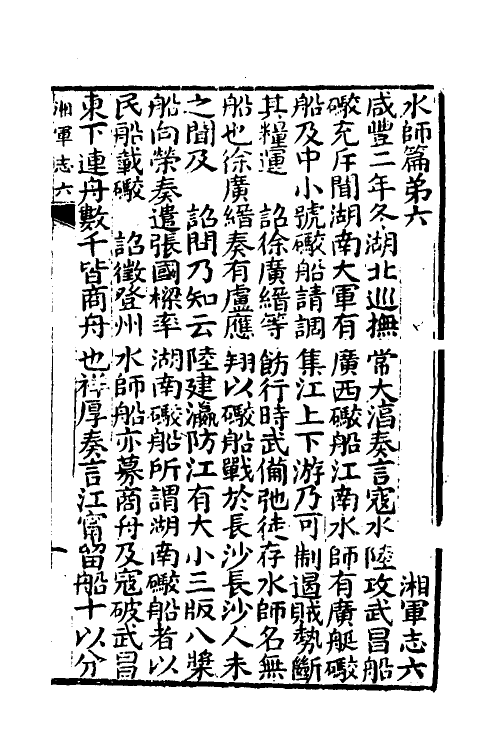 水師篇第六 湘軍志六
咸豐二年冬湖北巡撫常大湻奏言寇水陸攻武昌船
礮充斥聞湖南大軍有廣西礮船江南水師有廣艇礮
船及中小號礮船請調集江上下游乃可制遏賊勢斷
其糧運 詔徐廣縉等飭行時武備弛徒存水師名無
船也徐廣縉奏有盧應翔以礮船戰於長沙長沙人未
之聞及 詔問乃知云陸建瀛防江有大小三版八槳
船向榮奏遣張國樑率湖南礮船所謂湖南礮船者以
民船載礮 詔徵登州水師船亦募商舟及寇破武昌
東下連舟數千皆商舟也祥厚奏言江甯留船十以分
湘軍志六 一